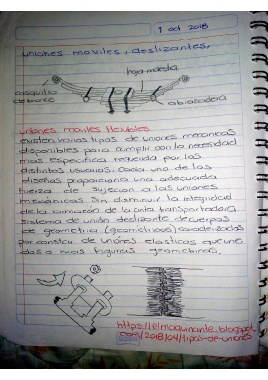 1 oct 2018
uniones moviles, deslizantes,
hoja maestra
casquillo
de bronce
abrazadera
uniones moviles flexibles
existen varias tipos de uniones mecanicas
disponibles para cumplir con la necesidad
mas especifica requerida por los
distintos usuarios. Cada uno de los
diseños proporciona una adecuada
fuerza de sujecion a las uniones
mecanicas sin disminuir la integridad
de la armazon de la cinta transportadora
sistema de unión deslizante de cuerpos
de geometria (geometricos) caracterizados
por constar de uniones elasticas que une
dos o mas figuras geometricas.
https://elmaquinante.blogspot.
com/2018/04/tipos-de-uniones